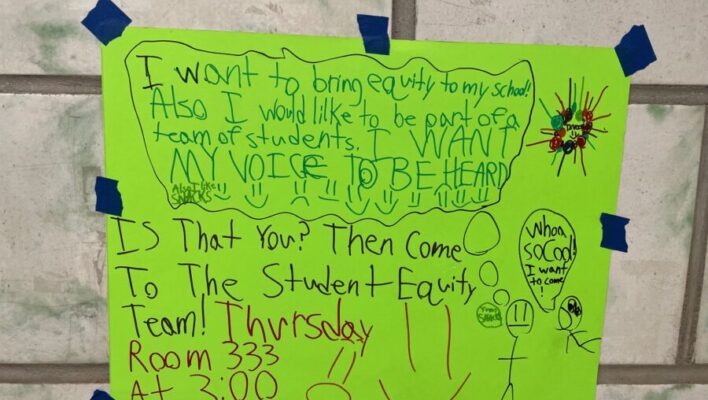 I want to bring equity to my school!!
Also I would lilke to be part of a
team of students. I WANT
MY VOICE TO BE HEARD
Also I like
SNACKS
IS That You? Then Come
To The Student Equity
Team! Thursday
Room 333
At 3:00
Whoa
SO Cool!
I want
to come
!
SNACKS